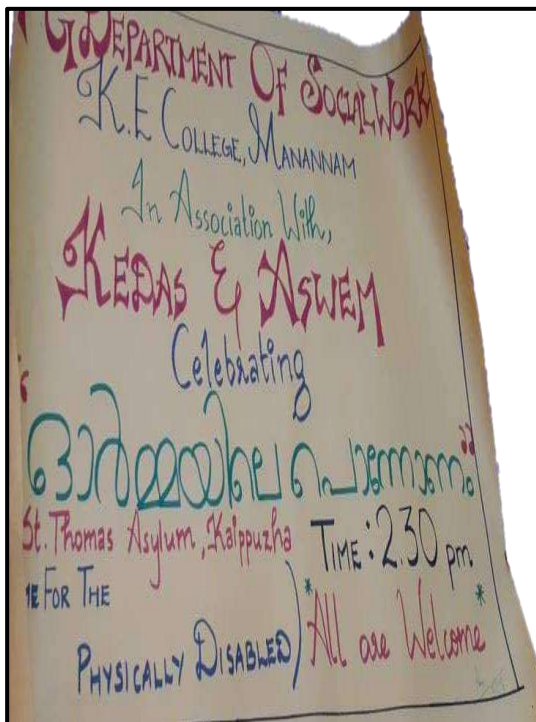 PG DEPARTMENT OF SOCIAL WORK
K.E COLLEGE, MANANNAM
In Association With,
KEDAS & ASWEM
Celebrating
“ഓർമ്മയിലെ പൊന്നോണം”
St. Thomas Asylum, Kaippuzha
TIME: 2.30 pm
FOR THE
PHYSICALLY DISABLED)
*All are Welcome*